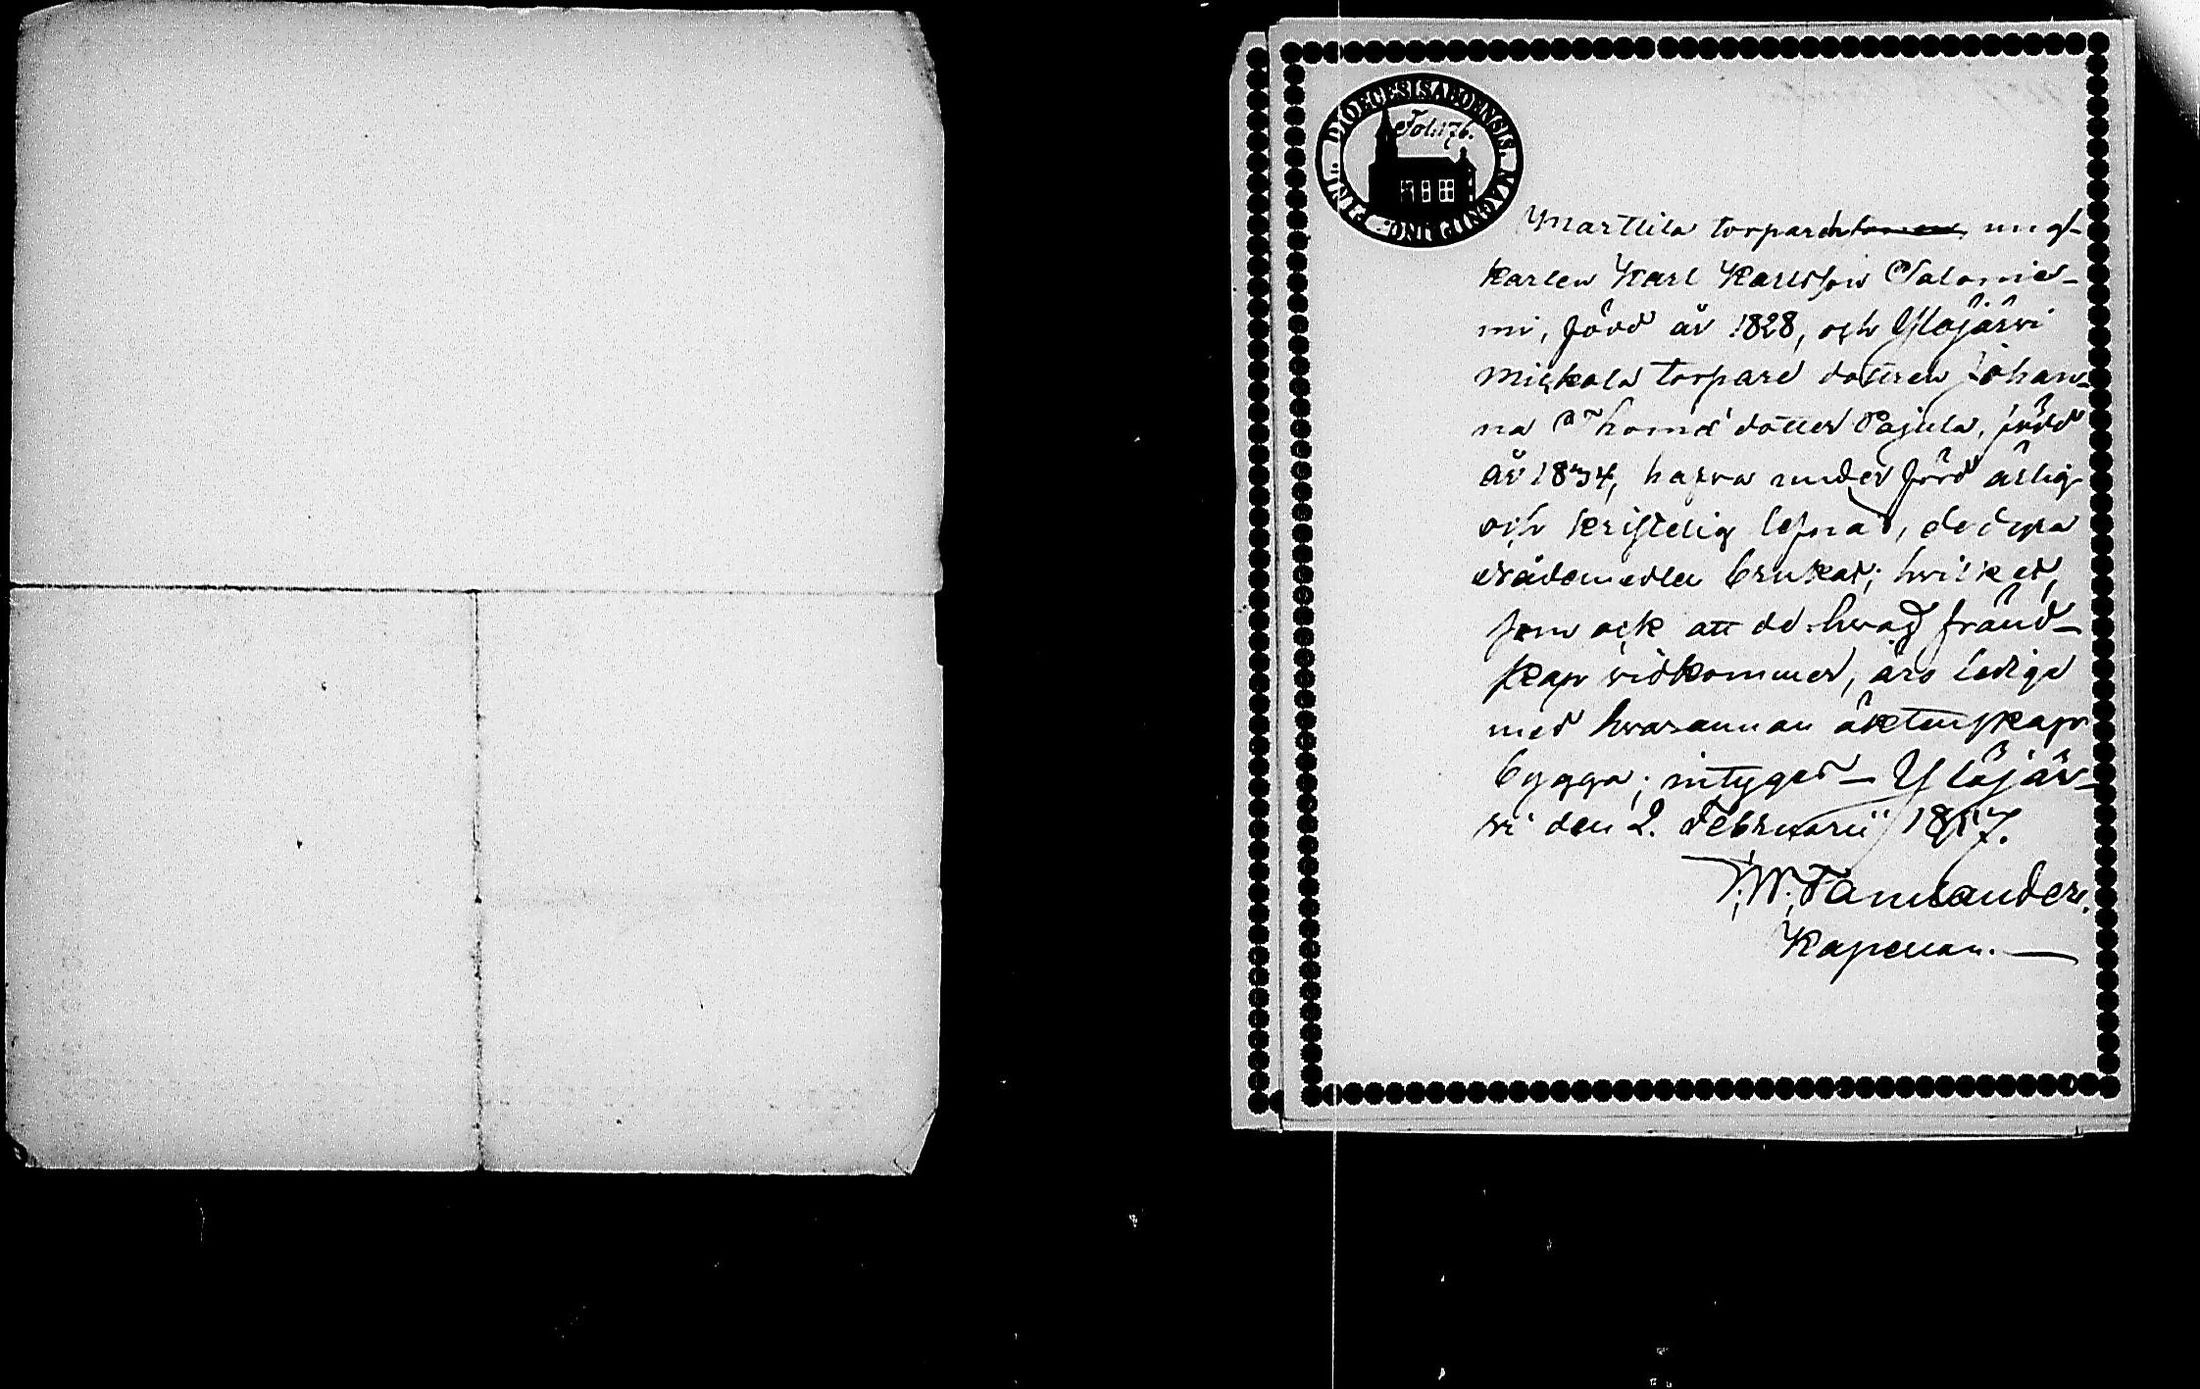 DIOECESIS ABOENSIS. MAGNI DUC: FINL:
Fol: 176.
Marttila torpare ung-
karlen Karl Karlsson Salonie-
mi, född år 1828, och Ylöjärvi
Mickola torpare dottren Johan-
na Thomædotter Pajula, född
år 1834, hafva under förd ärlig
och kristelig lefnad, de dyra
nådemedlen brukat; hvilket,
som ock att de hvad fränd-
skap vidkommer, äro lediga
med hvarannan äktenskap
bygga; intygar — Ylöjär-
vi den 2. Februarii 1857.
Kapellan.